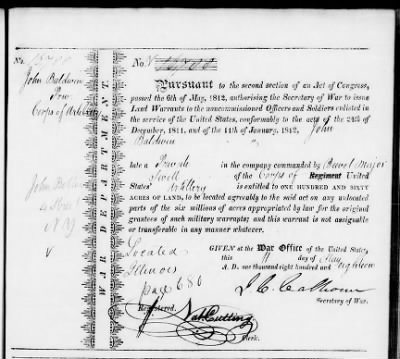 No.
John Baldwin
Corps of Artillery
WAR DEPARTMENT.
No.
Pursuant to the second section of an Act of Congress,
passed the 6th of May, 1812, authorising the Secretary of War to issue
Land Warrants to the noncommissioned Officers and Soldiers enlisted in
the service of the United States, conformably to the acts of the 24th of
December, 1811, and of the 11th of January, 1812, John
Baldwin
late a Private in the company commanded by Brevet Major
of the Corps of Regiment United
States' Artillery is entitled to ONE HUNDRED AND SIXTY
ACRES OF LAND, to be located agreeably to the said act on any unlocated
part of the six millions of acres appropriated by law for the original
grantees of such military warrants; and this warrant is not assignable
or transferable in any manner whatever.
John Baldwin
N Y
V
Located
Illinois
page 680
GIVEN at the War Office of the United States,
this 11 day of May
A. D. one thousand eight hundred and eighteen
J. C. Calhoun
Secretary of War.
Registered.
Nat Cutting
Clerk.